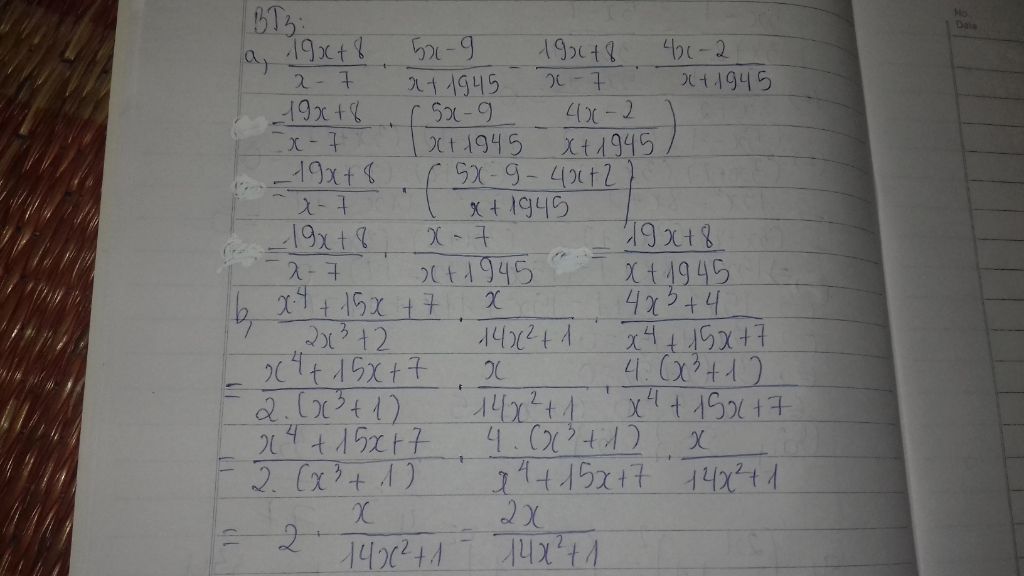 BT3:
No.
Date
a, \frac{19x+8}{x-7} \cdot \frac{5x-9}{x+1945} - \frac{19x+8}{x-7} \cdot \frac{4x-2}{x+1945}
= \frac{19x+8}{x-7} \cdot \left( \frac{5x-9}{x+1945} - \frac{4x-2}{x+1945} \right)
= \frac{19x+8}{x-7} \cdot \left( \frac{5x-9-4x+2}{x+1945} \right)
= \frac{19x+8}{x-7} \cdot \frac{x-7}{x+1945} = \frac{19x+8}{x+1945}
b, \frac{x^4+15x+7}{2x^3+2} \cdot \frac{x}{14x^2+1} \cdot \frac{4x^3+4}{x^4+15x+7}
= \frac{x^4+15x+7}{2.(x^3+1)} \cdot \frac{x}{14x^2+1} \cdot \frac{4.(x^3+1)}{x^4+15x+7}
= \frac{x^4+15x+7}{2.(x^3+1)} \cdot \frac{4.(x^3+1)}{x^4+15x+7} \cdot \frac{x}{14x^2+1}
= 2 \cdot \frac{x}{14x^2+1} = \frac{2x}{14x^2+1}